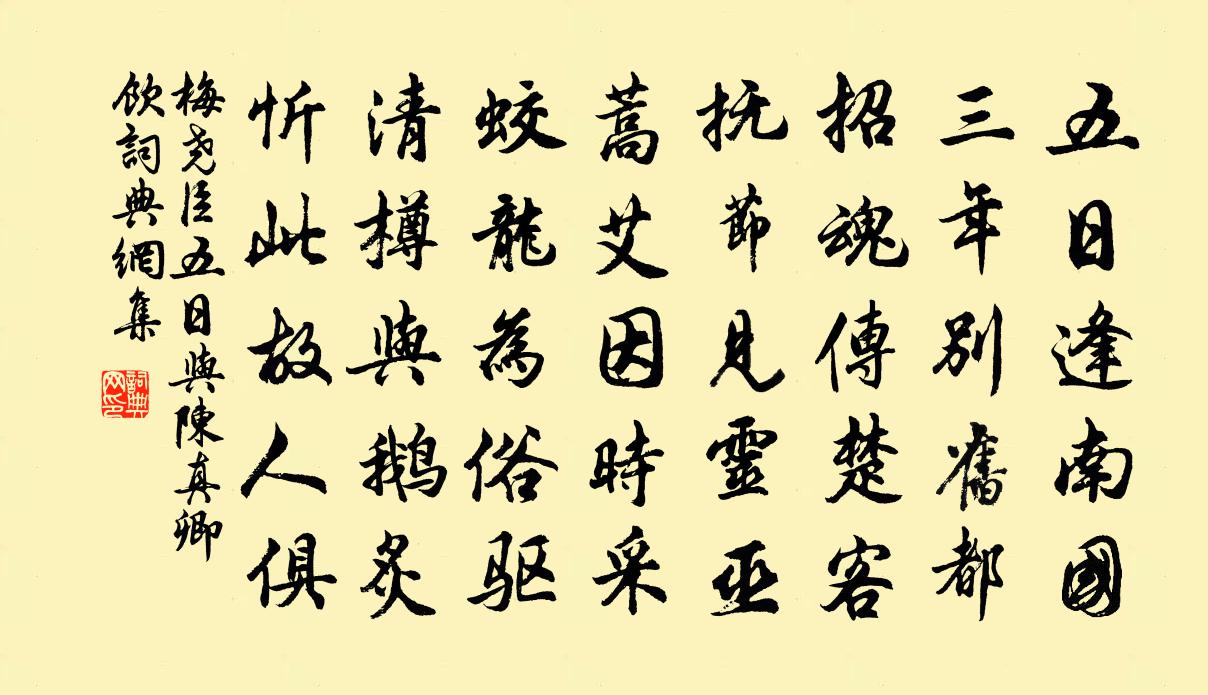 五日逢南國
三年別舊都
招魂傳楚客
抚節見靈巫
蒿艾因時采
蛟龍為俗驱
清樽與鹅炙
忻此故人俱
梅尧臣五日與陳真卿
飲詞典網集
詞典网印